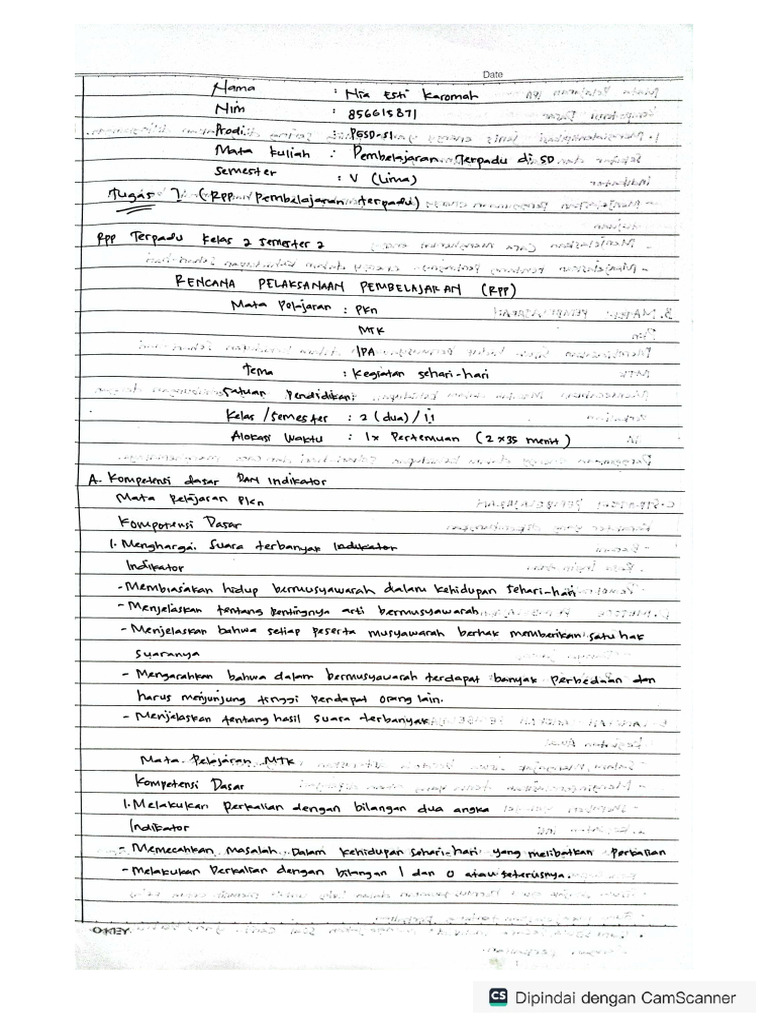 Date
Nama : Nia Esti Karomah
Nim : 856615871
Prodi : PGSD-S1
Mata kuliah : Pembelajaran Terpadu di SD
Semester : V (Lima)
Tugas 7 (RPP Pembelajaran terpadu)
RPP Terpadu Kelas 2 Semester 2
RENCANA PELAKSANAAN PEMBELAJARAN (RPP)
Mata Polajaran : PKn
MTK
IPA
Tema : Kegiatan sehari-hari
Satuan Pendidikan :
Kelas /semester : 2 (dua) / ii
Alokasi Waktu : 1x Pertemuan (2x35 menit)
A. Kompetensi dasar DAN Indikator
Mata Pelajaran PKn
Kompetensi Dasar
1. Menghargai Suara terbanyak Indikator
Indikator
- Membiasakan hidup bermusyawarah dalam kehidupan sehari-hari
- Menjelaskan tentang pentingnya arti bermusyawarah
- Menjelaskan bahwa setiap peserta musyawarah berhak memberikan satu hak
suaranya
- Mengarahkan bahwa dalam bermusyawarah terdapat banyak perbedaan dan
harus menjunjung tinggi pendapat orang lain.
- Menjelaskan tentang hasil suara terbanyak
Mata Pelajaran MTK
Kompetensi Dasar
1. Melakukan perkalian dengan bilangan dua angka
Indikator
- Memecahkan masalah Dalam kehidupan sehari-hari yang melibatkan perkalian
- Melakukan perkalian dengan bilangan 1 dan 0 atau seterusnya.
OKEY
CS Dipindai dengan CamScanner